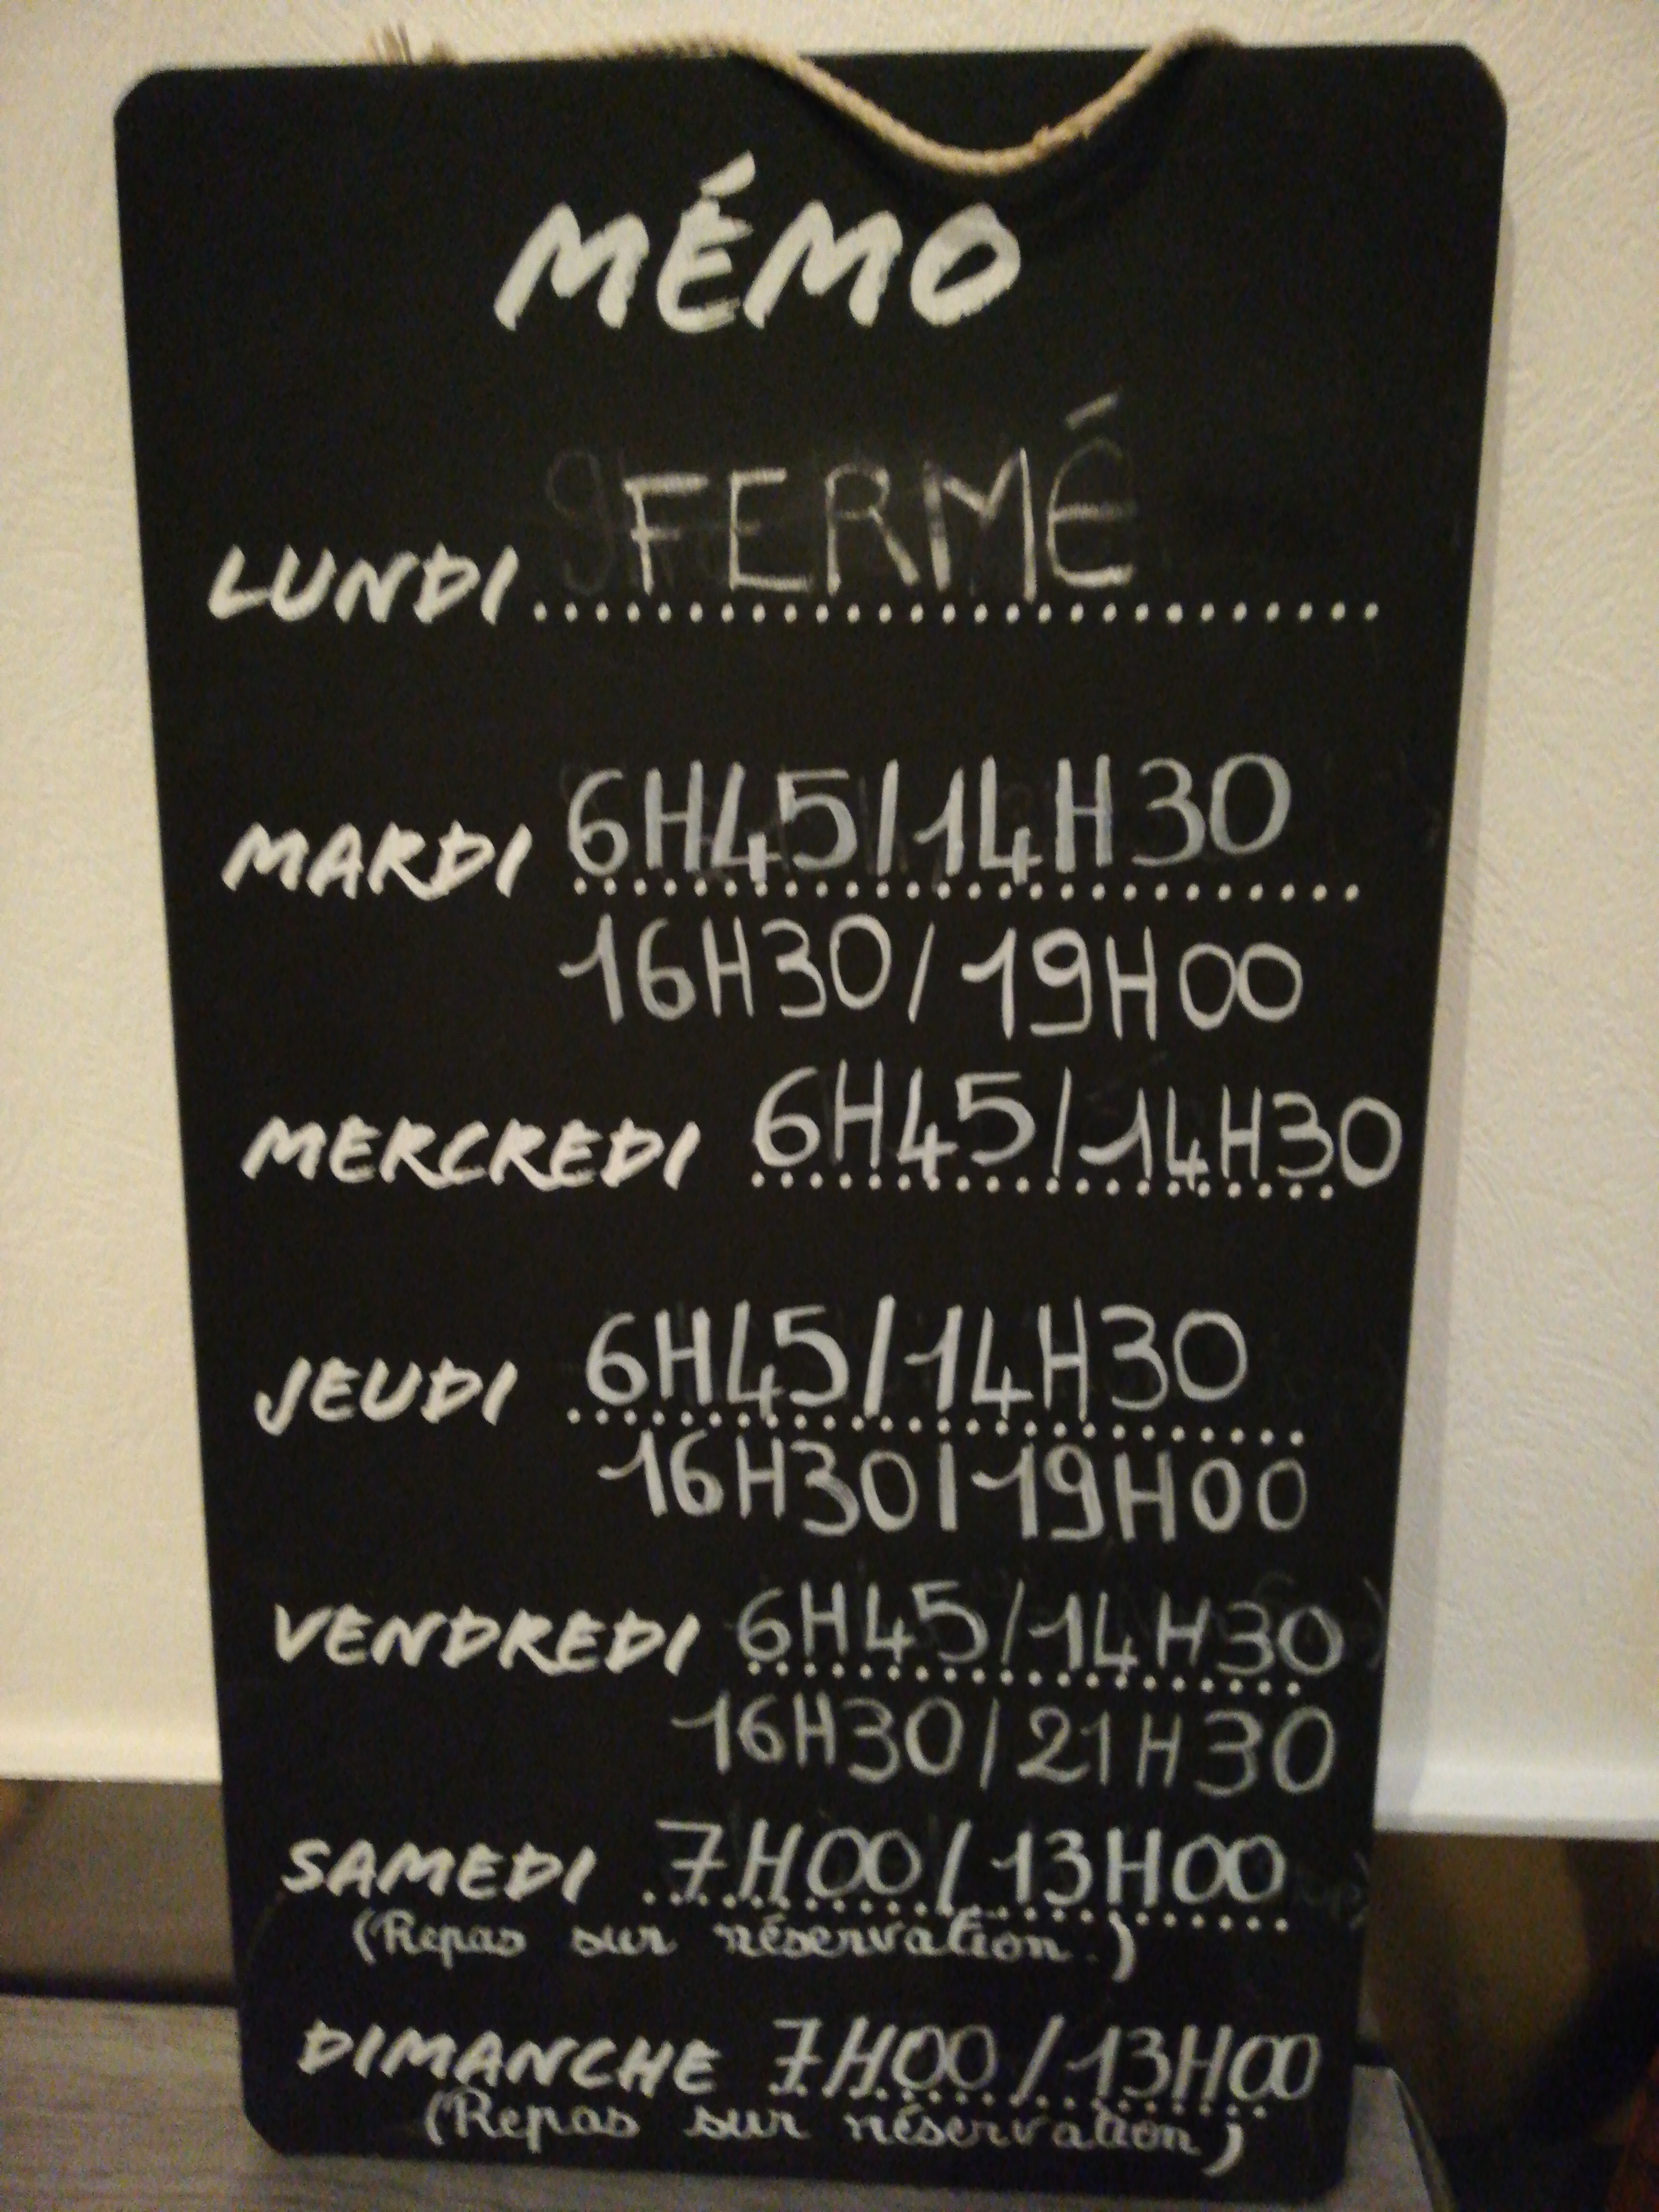 MÉMO
LUNDI FERMÉ
MARDI 6H45/14H30
16H30/19H00
MERCREDI 6H45/14H30
JEUDI 6H45/14H30
16H30/19H00
VENDREDI 6H45/14H30
16H30/21H30
SAMEDI 7H00/13H00
(Repas sur réservation.)
DIMANCHE 7H00/13H00
(Repas sur réservation)